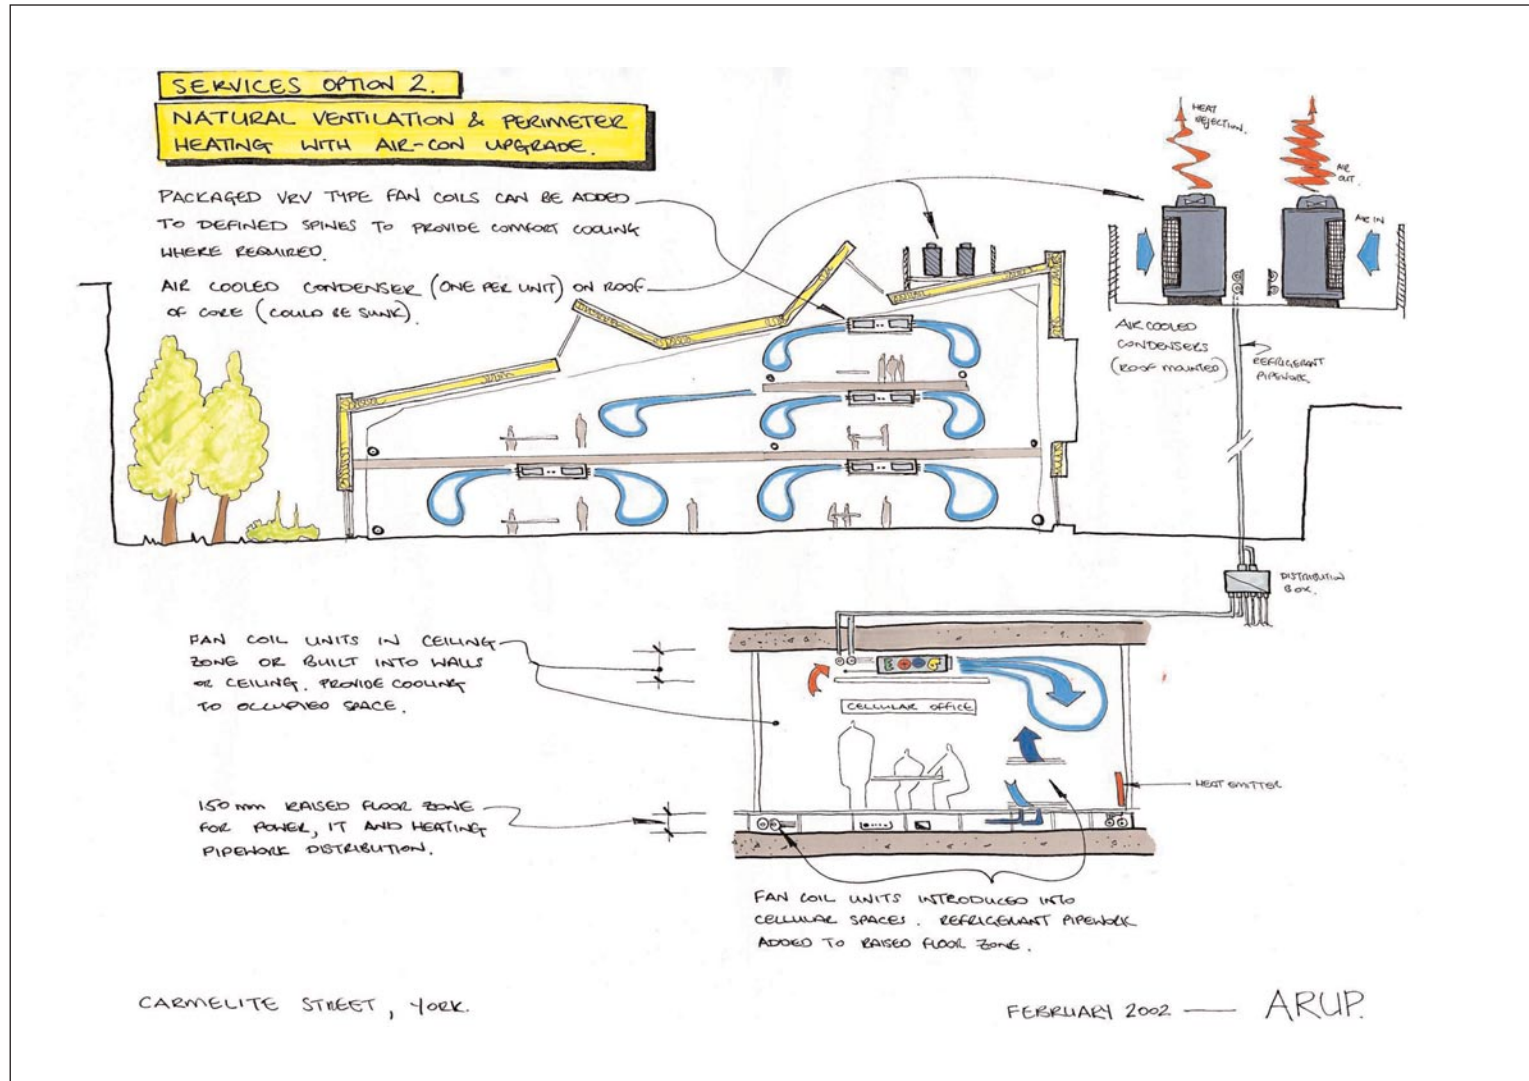 SERVICES OPTION 2.
NATURAL VENTILATION & PERIMETER
HEATING WITH AIR-CON UPGRADE.
PACKAGED VRV TYPE FAN COILS CAN BE ADDED
TO DEFINED SPINES TO PROVIDE COMFORT COOLING
WHERE REQUIRED.
AIR COOLED CONDENSER (ONE PER UNIT) ON ROOF
OF CORE (COULD BE SUNK).
HEAT
REJECTION.
AIR
OUT.
AIR IN
AIR COOLED
CONDENSERS
(ROOF MOUNTED)
REFRIGERANT
PIPEWORK
DISTRIBUTION
BOX.
FAN COIL UNITS IN CEILING
ZONE OR BUILT INTO WALLS
OR CEILING. PROVIDE COOLING
TO OCCUPIED SPACE.
CELLULAR OFFICE
HEAT EMITTER
150mm RAISED FLOOR ZONE
FOR POWER, IT AND HEATING
PIPEWORK DISTRIBUTION.
FAN COIL UNITS INTRODUCED INTO
CELLULAR SPACES. REFRIGERANT PIPEWORK
ADDED TO RAISED FLOOR ZONE.
CARMELITE STREET, YORK.
FEBRUARY 2002 — ARUP.